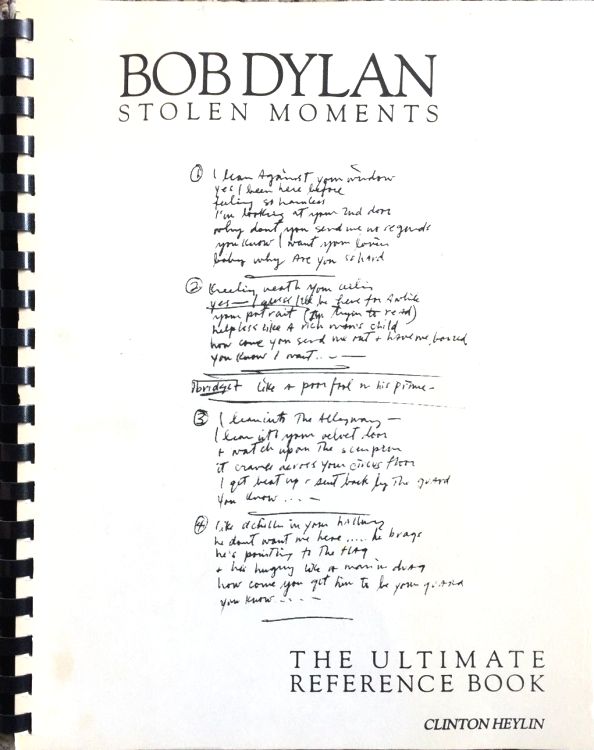 BOB DYLAN
STOLEN MOMENTS
① I lean Against your window
yes I been here before
feeling so harmless
I'm looking at your 2nd door
why dont you send me no regards
you know I want your lovin
baby why Are you so hard
② Kneeling neath your ceilin
yes — I guess I'll be here for Awhile
your portrait (I'm tryin to read)
helpless like A rich man's child
how come you send me out + have me barred
you know I want .. — —
(bridge) like a poor fool in his prime —
③ I lean into The Alleyway —
I lean into your velvet door
+ watch upon The scorpion
it crawls across your circus floor
I get beat up + sent back by The guard
you know ... —
④ like Achilles in your hallway
he dont want me here .... he brags
he's pointing to The flag
+ he's hungry like a man in drag
how come you get him to be your guard
you know - . . —
THE ULTIMATE
REFERENCE BOOK
CLINTON HEYLIN